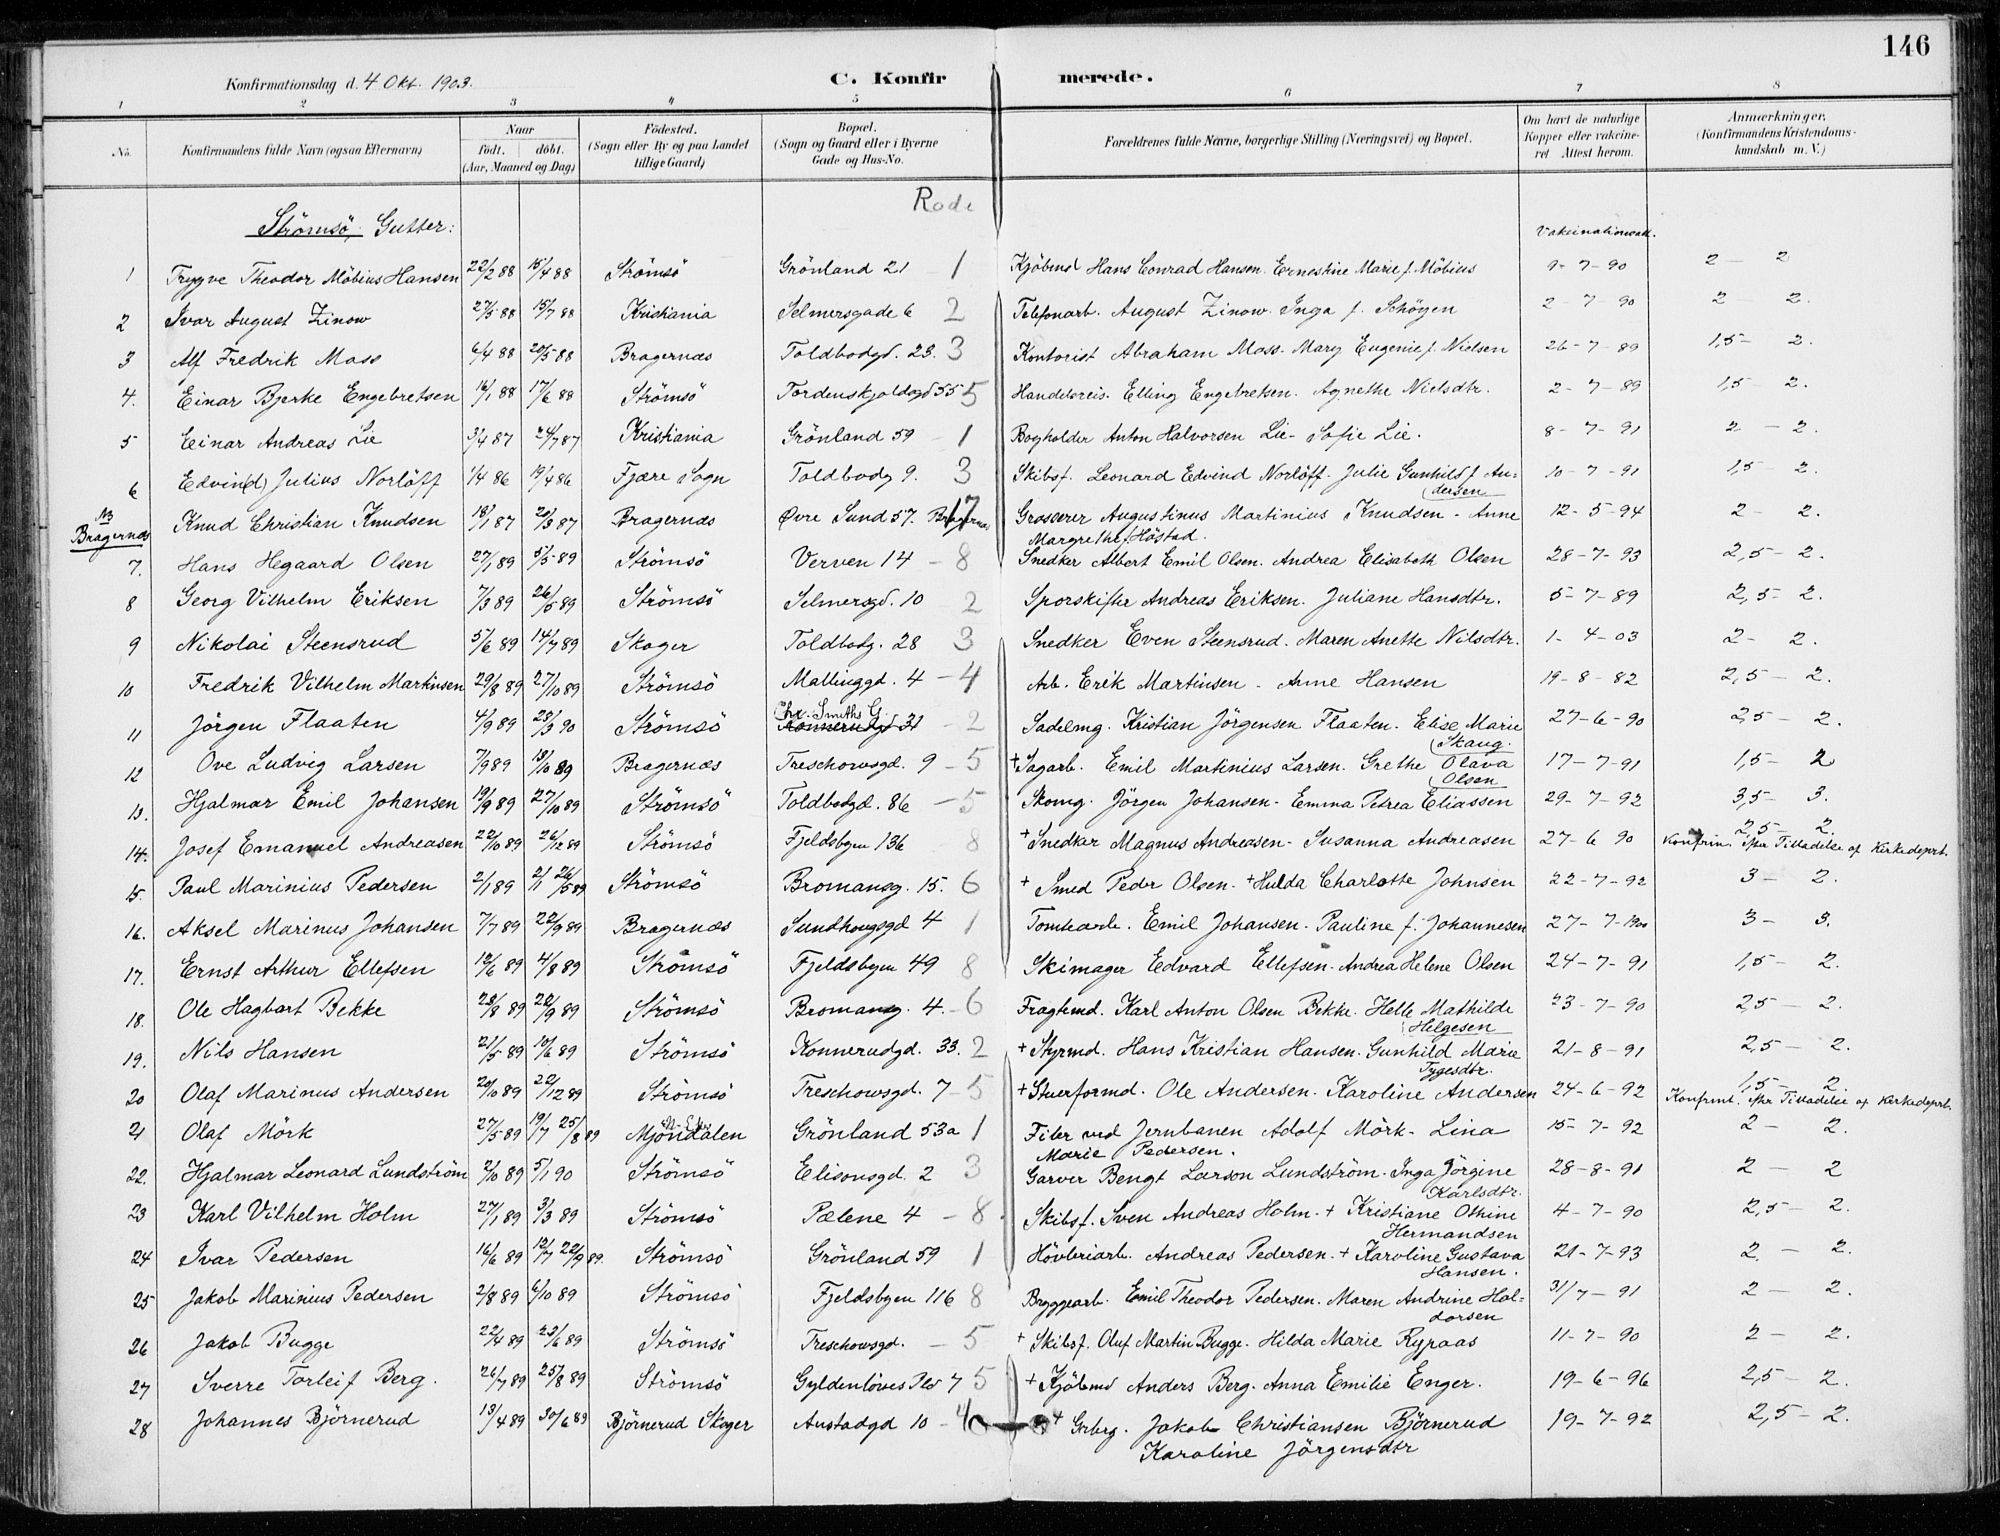 146
Konfirmationsdag d. 4 Okt. 1903.
C. Konfirmerede.
1 2 3 4 5 6 7 8
No.
Konfirmandens fulde Navn (ogsaa Efternavn)
Naar
födt. döbt.
(Aar, Maaned og Dag)
Födested.
(Sogn eller By og paa Landet
tillige Gaard)
Bopæl.
(Sogn og Gaard eller i Byerne
Gade og Hus-No.
Forældrenes fulde Navne, borgerlige Stilling (Næringsvei) og Bopæl.
Om havt de naturlige
Kopper eller vakcine-
ret Attest herom.
Anmærkninger.
(Konfirmandens Kristendoms-
kundskab m. V.)
Rode
Strömsö, Gutter:
Vakcinationsatt.
1 Trygve Theodor Möbius Hansen 22/2 88 15/4 88 Strömsö Grönland 21 - 1 Kjöbmd Hans Conrad Hansen. Ernestine Marie f. Möbius 9-7-90 2 - 2
2 Ivar August Zinow 27/5 88 15/7 88 Kristiania Selmersgade 6 2 Telefonarb. August Zinow. Inga f. Schöyen 2-7-90 2 2.
3 Alf Fredrik Mass 6/4 88 20/5 88 Bragernæs Toldbodgd. 23. 3 Kontorist Abraham Mass. Mary Eugenie f. Nielsen 26-7-89 1,5- 2.
4. Einar Bjerke Engebretsen 16/1 88 17/6 88 Strömsö Tordenskjoldsgd 55 5 Handelsreis. Elling Engebretsen. Agnethe Nielsdtr. 2-7-89 1,5 - 2.
5 Einar Andreas Lie 3/4 87 24/7 87 Kristiania Grönland 59 - 1 Bogholder Anton Halvorsen Lie - Sofie Lie. 8-7-91 2 - 2.
6 Edvin(d) Julius Norlöff 1/4 86 19/4 86 Fjære Sogn Toldbodg 9. 3 Skibsf. Leonard Edvind Norlöff. Julie Gunhild f. An=
dersen 10-7-91 1,5 - 2.
NB
Bragernæs Knud Christian Knudsen 18/1 87 20/3 87 Bragernæs Øvre Sund 57. Bragernæs 17 Grosserer Augustinus Martinius Knudsen - Anne
Margrethe f. Höstad. 12-5-94 2 - 2.
7. Hans Hegaard Olsen 27/1 89 5/5 89 Strömsö Verven 14 - 8 Snedker Albert Emil Olsen. Andrea Elisabeth Olsen 28-7-93 2,5- 2.
8 Georg Vilhelm Eriksen 7/3 89 26/5 89 Strömsö Selmersgd. 10 - 2 Sporskifter Andreas Eriksen. Juliane Hansdtr. 5-7-89 2,5- 2.
9 Nikolai Steensrud 5/6 89 14/7 89 Skoger Toldbodg. 28 3 Snedker Even Steensrud. Maren Anette Nilsdtr. 1-4-03 2- 2.
10 Fredrik Vilhelm Martinsen 29/8 89 27/10 89 Strömsö Mallinggd. 4 - 4 Arb. Erik Martinsen - Anne Hansen 19-8-82 2,5 - 2.
11 Jörgen Flaaten 4/9 89 23/3 90 Strömsö Chr. Smiths G.
Konnerudgd 31 - 2 Sadelmg. Kristian Jörgensen Flaaten. Elise Marie
Skaug. 27-6-90 2,5 - 2.
12 Ove Ludvig Larsen 7/9 89 13/10 89 Bragernæs Treschowsgd. 9 - 5 + Sagarb. Emil Martinius Larsen. Grethe Olava
Olsen 17-7-91 1,5- 2
13. Hjalmar Emil Johansen 19/9 89 27/10 89 Strömsö Toldbodgd. 86 - 5 Skomg. Jörgen Johansen - Emma Petrea Eliassen 29-7-92 3,5- 3.
14. Josef Emanuel Andreasen 22/10 89 26/12 89 Strömsö Fjeldsbyen 136 8 + Snedker Magnus Andreasen - Susanna Andreasen 27-6 90 2,5 - 2.
Konfirm. efter Tilladelse af Kirkedeprt.
15. Paul Marinius Pedersen 2/1 89 2/1 26/5 89 Strömsö Bromansg. 15. 6 + Smed Peder Olsen. + Hulda Charlotte Johnsen 22-7-92 3- 2.
16. Aksel Marinus Johansen 7/7 89 22/9 89 Bragernæs Sundhougsgd 4 1 Tomtearb. Emil Johansen. Pauline f. Johannesen 27-7-1900 3- 3.
17. Ernst Arthur Ellefsen 12/6 89 4/8 89 Strömsö Fjeldsbyen 49 8 Skimager Edvard Ellefsen. Andrea Helene Olsen 24-7-91 1,5- 2.
18. Ole Hagbart Bekke 23/8 89 22/9 89 Strömsö Bromansg. 4. - 6 Fragtemd. Karl Anton Olsen Bekke. Helle Mathilde
Helgesen 23-7-90 2,5 - 2.
19. Nils Hansen 21/5 89 10/6 89 Strömsö Konnerudgd. 33. 2 + Styrmd. Hans Kristian Hansen. Gunhild Marie
Tygesdtr. 21-8-91 2,5 - 2.
20 Olaf Marinus Andersen 20/10 89 22/12 89 Strömsö Treschowsgd. 7 - 5 + Stuerformd. Ole Andersen. Karoline Andersen 24-6-92 1,5 - 2
Konfirmt. efter Tilladelse af Kirkedeprt.
21 Olaf Mörk 27/5 89 19/7 25/8 89 Mjöndalen Grönland 53a 1 Filer ved Jernbanen Adolf Mörk - Lina
Marie Pedersen. 15-7-92 2 - 2.
22. Hjalmar Leonard Lundström 2/10 89 5/1 90 Strömsö Elisonsgd. 2 3 Garver Bengt Larson Lundström. Inga Jörgine
Karlsdtr. 28-8-91 2 - 2
23 Karl Vilhelm Holm 27/1 89 3/3 89 Strömsö Pælene 4 - 8. Skibsf. Sven Andreas Holm. + Kristiane Othine
Hermandsen 4-7-90 2,5 - 2.
24 Ivar Pedersen 16/6 89 12/7 22/9 89. Strömsö Grönland 59 1 Hövleriarb. Andreas Pedersen. + Karoline Gustava
Hansen. 21-7-93 2 - 2.
25 Jakob Marinius Pedersen 2/8 89 6/10 89 Strömsö Fjeldsbyen 116 8 Bryggearb. Emil Theodor Pedersen. Maren Andrine Hal=
dorsen 31/7-91 2 - 2.
26 Jakob Bugge 22/4 89 23/6 89 Strömsö Treschowsgd. - 5 + Skibsf. Oluf Martin Bugge. Hilda Marie Ryraas 11-7-90 2 - 2.
27 Sverre Torleif Berg. 26/7 89 25/8 89 Strömsö Gyldenlöves Pld 7 5 + Kjöbmd Anders Berg. Anna Emilie Enger. 19-6-96 2,5 - 2.
28 Johannes Björnerud 13/4 89 30/6 89 Björnerud Skoger Austadgd 10 - + Jakob Christiansen Björnerud
Karoline Jörgensdtr 19-7-92 2,5 - 2.